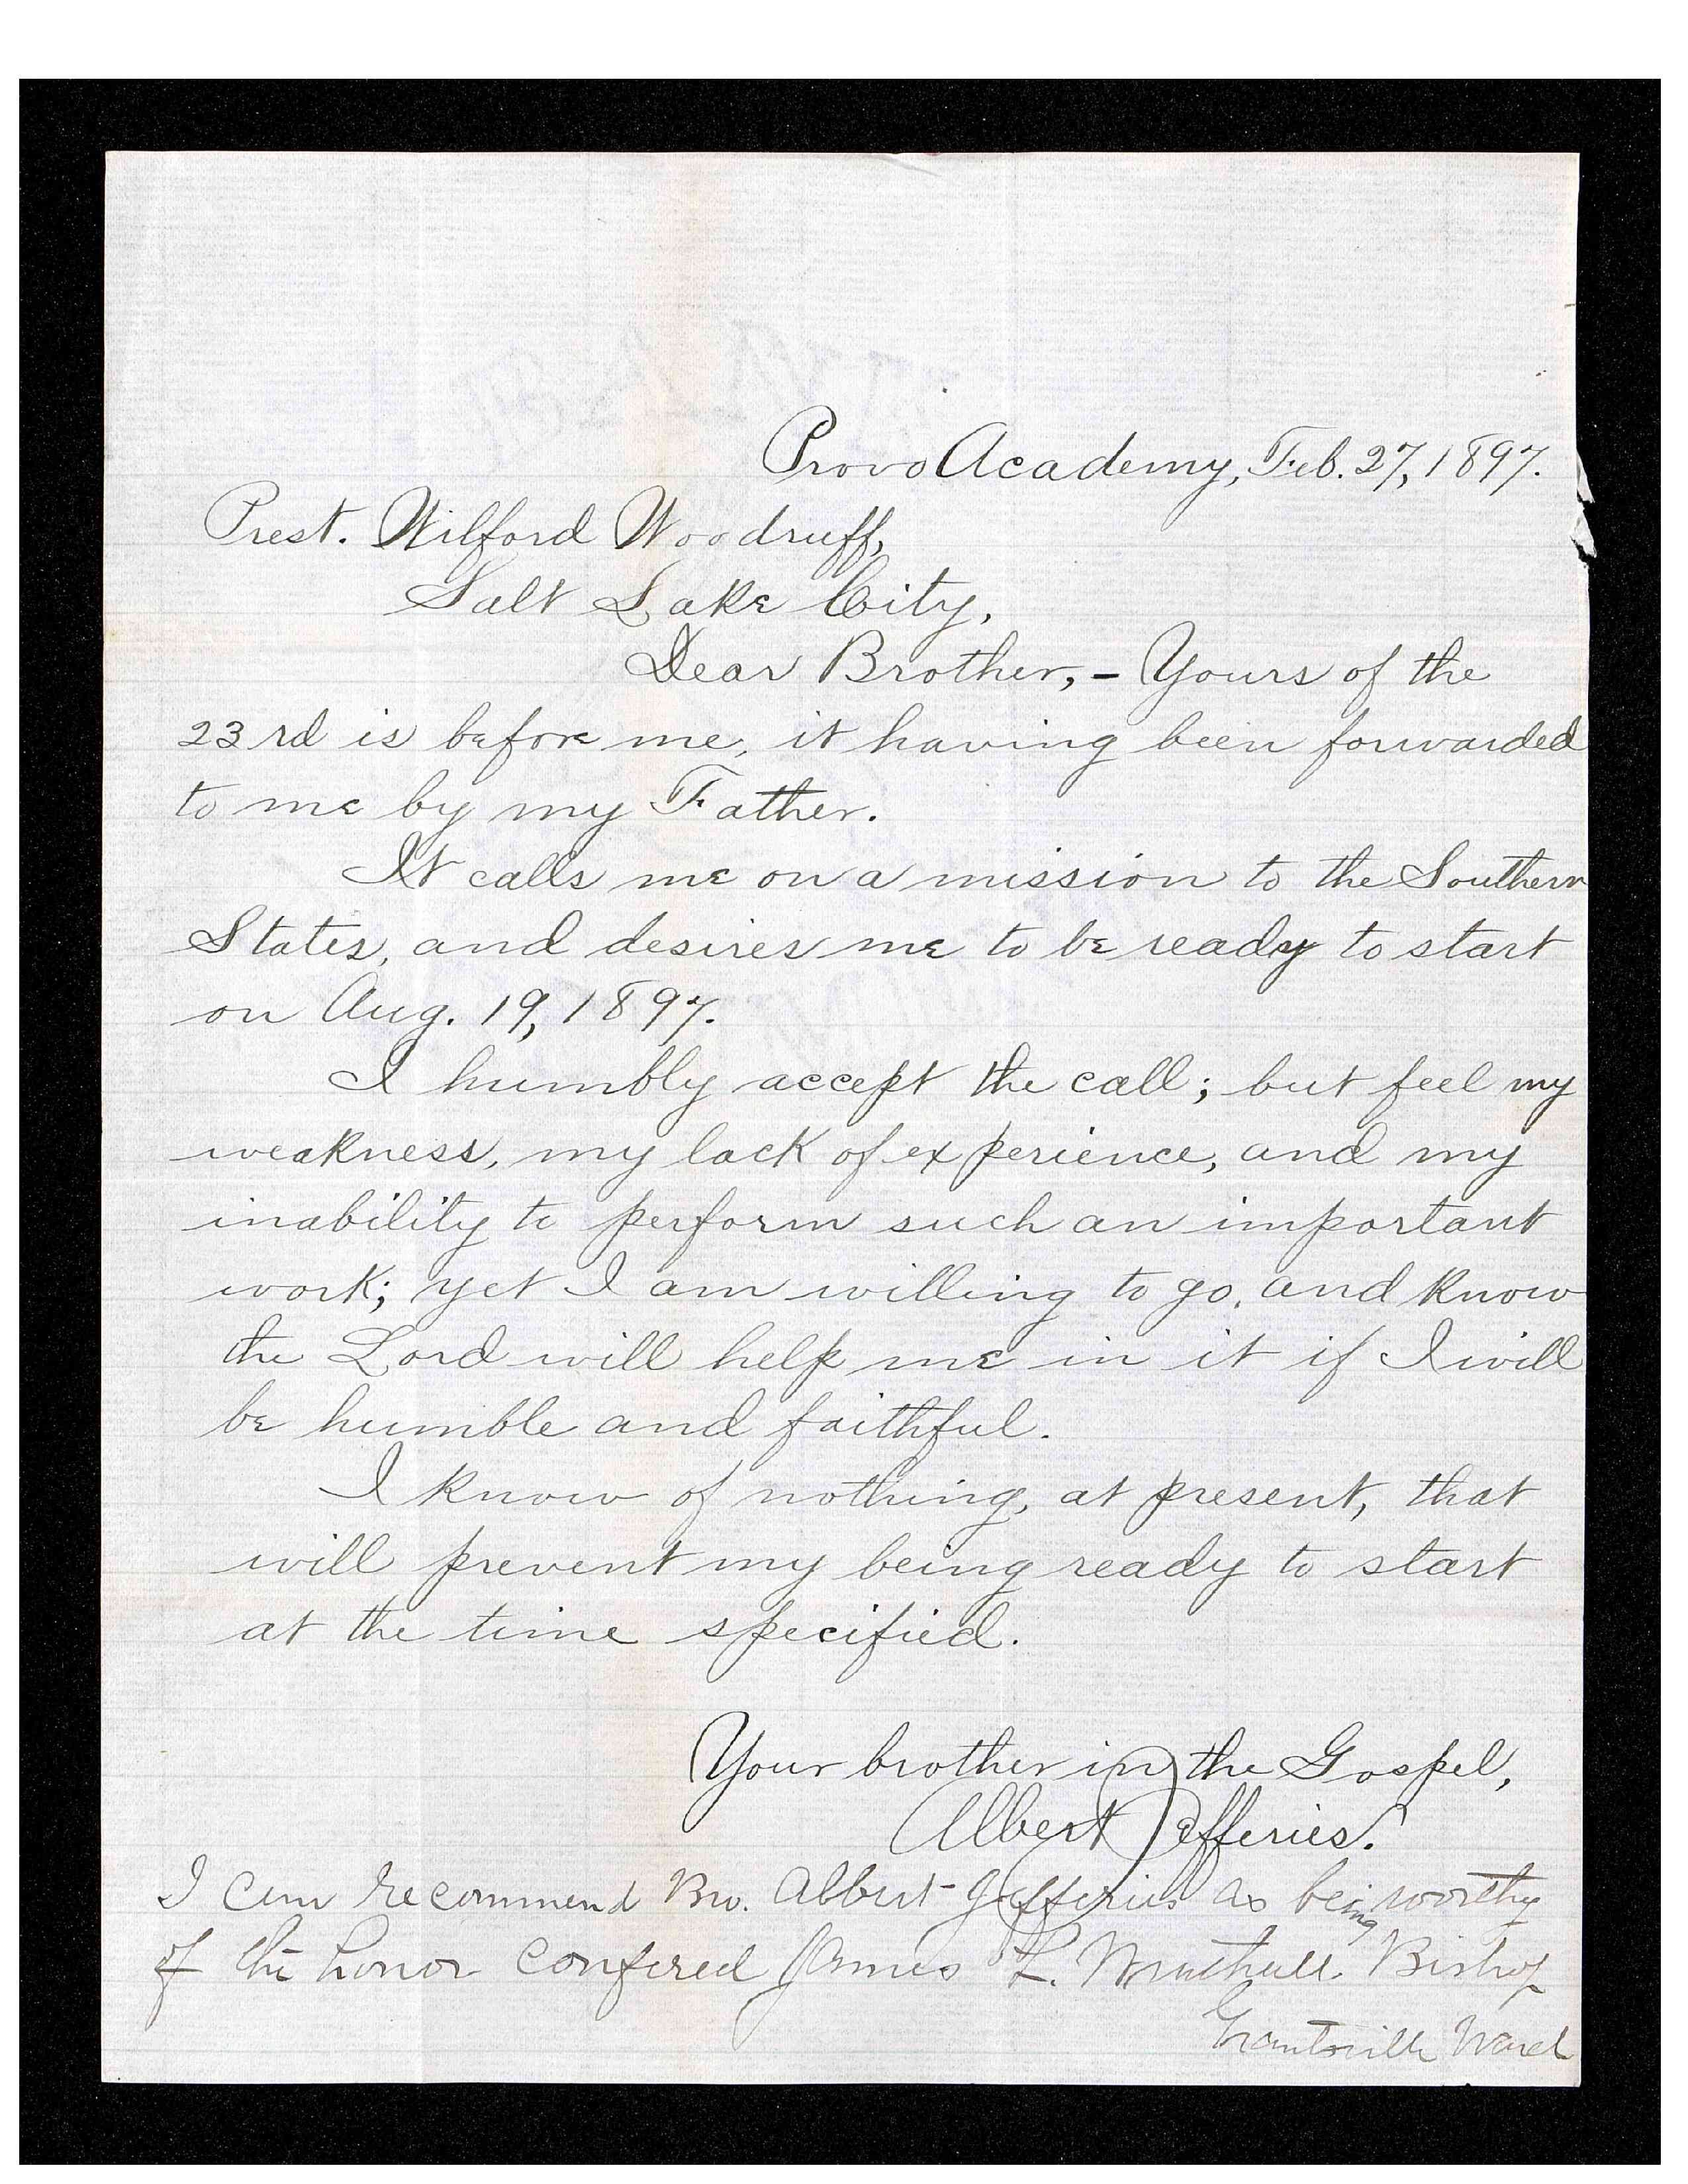 Provo Academy, Feb. 27, 1897.
Prest. Wilford Woodruff,
Salt Lake City,
Dear Brother,- Yours of the
23rd is before me, it having been forwarded
to me by my Father.
It calls me on a mission to the Southern
States, and desires me to be ready to start
on Aug. 19, 1897.
I humbly accept the call; but feel my
weakness, my lack of experience, and my
inability to perform such an important
work; yet I am willing to go, and know
the Lord will help me in it if I will
be humble and faithful.
I know of nothing, at present, that
will prevent my being ready to start
at the time specified.
Your brother in the Gospel,
Albert Jefferies.
I can recommend Bro. Albert Jefferies as being worthy
of the honor confered James L. Bishop
Grantsville Ward